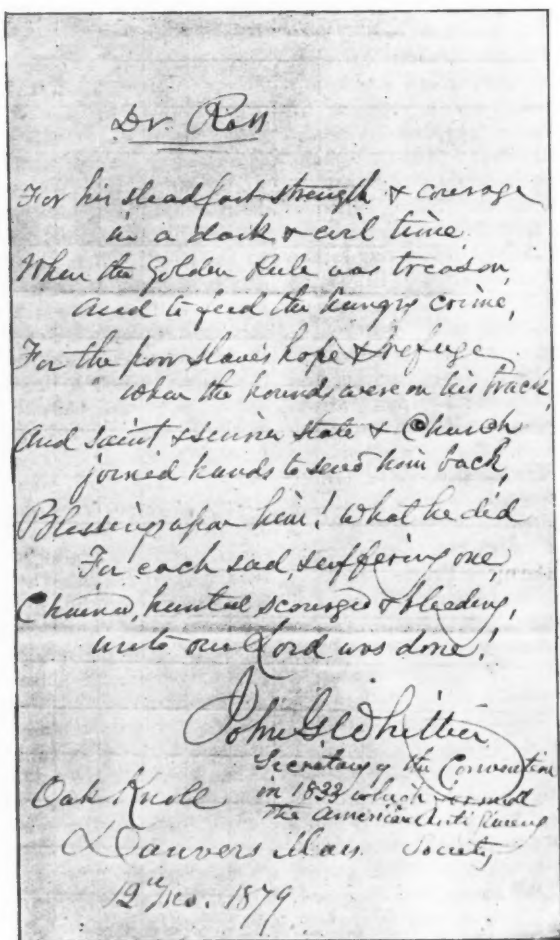 Dr. Ross
For his steadfast strength & courage
in a dark & evil time
When the Golden Rule was treason,
And to feed the hungry crime,
For the poor slave's hope & refuge
When the hounds were on his track,
And saint & sinner state & Church
joined hands to send him back,
Blessings upon him! What he did
For each sad, suffering one,
Chained, hunted scourged & bleeding,
unto our Lord was done!
John G Whittier
Secretary of the Convention
in 1833 which formed
the American Anti Slavery
Society
Oak Knoll
Danvers Mass
12th Mo. 1879